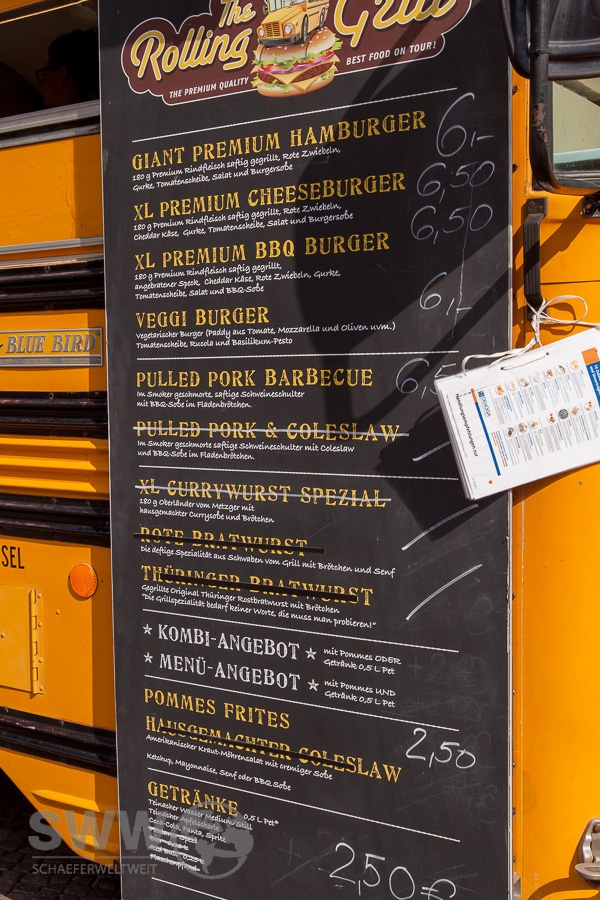 The
Rolling Grill
THE PREMIUM QUALITY
BEST FOOD ON TOUR!
GIANT PREMIUM HAMBURGER 6,-
180 g Premium Rindfleisch saftig gegrillt, Rote Zwiebeln,
Gurke, Tomatenscheibe, Salat und Burgersoße
XL PREMIUM CHEESEBURGER 6,50
180 g Premium Rindfleisch saftig gegrillt, Rote Zwiebeln,
Cheddar Käse, Gurke, Tomatenscheibe, Salat und Burgersoße
XL PREMIUM BBQ BURGER 6,50
180 g Premium Rindfleisch saftig gegrillt,
angebratener Speck, Cheddar Käse, Rote Zwiebeln, Gurke,
Tomatenscheibe, Salat und BBQ-Soße
VEGGI BURGER 6,-
Vegetarischer Burger (Paddy aus Tomate, Mozzarella und Oliven uvm.)
Tomatenscheibe, Rucola und Basilikum-Pesto
PULLED PORK BARBECUE 6,5
Im Smoker geschmorte, saftige Schweineschulter
mit BBQ-Soße im Fladenbrötchen.
PULLED PORK & COLESLAW
Im Smoker geschmorte saftige Schweineschulter mit Coleslaw
und BBQ-Soße im Fladenbrötchen.
XL CURRYWURST SPEZIAL
180 g Oberländer vom Metzger mit
hausgemachter Currysoße und Brötchen
ROTE BRATWURST
Die deftige Spezialität aus Schwaben vom Grill mit Brötchen und Senf
THÜRINGER BRATWURST
Gegrillte Original Thüringer Rostbratwurst mit Brötchen
"Die Grillspezialität bedarf keiner Worte, die muss man probieren!"
★ KOMBI-ANGEBOT ★ mit Pommes ODER
Getränk 0,5 L Pet
★ MENÜ-ANGEBOT ★ mit Pommes UND
Getränk 0,5 L Pet
POMMES FRITES 2,50
HAUSGEMACHTER COLESLAW
Amerikanischer Kraut-Möhrensalat mit cremiger Soße
Ketchup, Mayonnaise, Senf oder BBQ Soße
GETRÄNKE 0,5 L Pet*
Teinacher Wasser Medium/Still
Teinacher Apfelschorle
Coca-Cola, Fanta, Sprite
2,50€
BLUE BIRD
SEL
SWW
SCHAEFERWELTWEIT